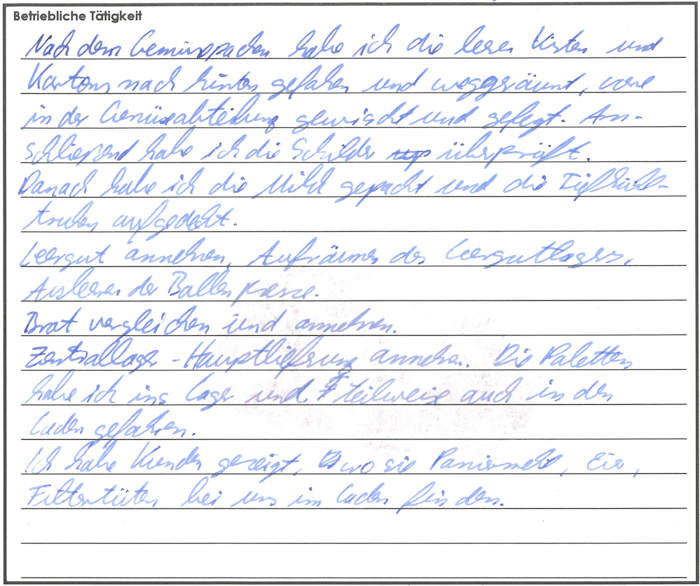 Betriebliche Tätigkeit
Nach dem Gemüsepacken habe ich die leeren Kisten und
Kartons nach hinten gefahren und weggeräumt, vorne
in der Gemüseabteilung gewischt und gefegt. An-
schließend habe ich die Schilder überprüft.
Danach habe ich die Milch gepackt und die Tiefkühl-
truhen aufgedeckt.
Leergut annehmen, Aufräumen des Leergutlagers,
Ausleeren der Ballenpresse.
Brot vergleichen und annehmen.
Zentrallager - Hauptlieferung annehmen. Die Paletten
habe ich ins Lager und teilweise auch in den
Laden gefahren.
Ich habe Kunden gezeigt, wo sie Paniermehl, Eier,
Filtertüten bei uns im Laden finden.